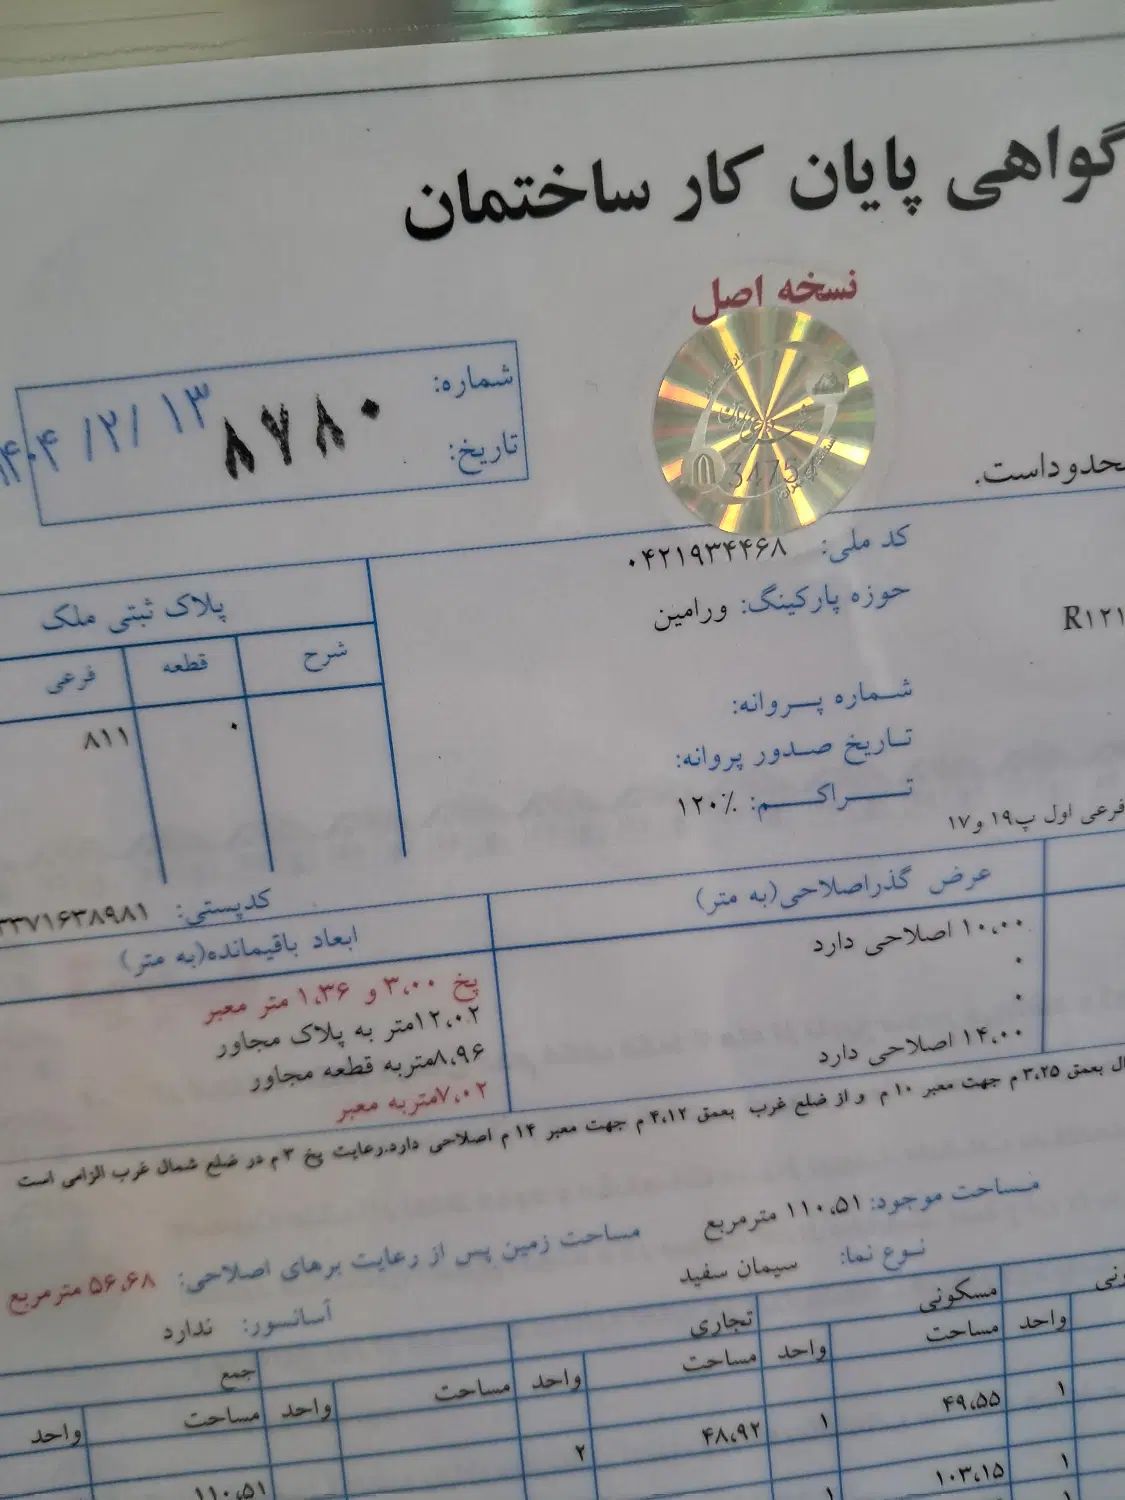 گواهی پایان کار ساختمان
نسخه اصل
شماره: ۸۷۸۰
تاریخ: ۱۴۰۴ /۲/ ۱۳
3475
محدوداست.
کد ملی: ۰۴۲۱۹۳۴۴۶۸
حوزه پارکینگ: ورامین
R۱۲۱
شماره پروانه:
تاریخ صدور پروانه:
تراکم: ۱۲۰٪
پلاک ثبتی ملک
شرح قطعه فرعی
۰ ۸۱۱
فرعی اول پ۱۹ و۱۷
کدپستی: ۳۳۷۱۶۳۸۹۸۱
عرض گذراصلاحی(به متر)
ابعاد باقیمانده(به متر)
۱۰،۰۰ اصلاحی دارد
۰
۰
۱۴،۰۰ اصلاحی دارد
پخ ۳،۰۰ و ۱،۳۶ متر معبر
۱۲،۰۲متر به پلاک مجاور
۸،۹۶متربه قطعه مجاور
۷،۰۲متربه معبر
بعمق ۳،۲۵ م جهت معبر ۱۰ م و از ضلع غرب بعمق ۴،۱۲ م جهت معبر ۱۴ م اصلاحی دارد.رعایت پخ ۳ م در ضلع شمال غرب الزامی است
مساحت موجود: ۱۱۰،۵۱ مترمربع
مساحت زمین پس از رعایت برهای اصلاحی: ۵۶،۶۸ مترمربع
نوع نما: سیمان سفید
آسانسور: ندارد
مسکونی تجاری جمع
واحد مساحت واحد مساحت واحد مساحت واحد مساحت واحد
۱ ۴۹،۵۵ ۱ ۴۸،۹۲ ۲
۱ ۱۰۳،۱۵ ۱ ۱۱۰،۵۱